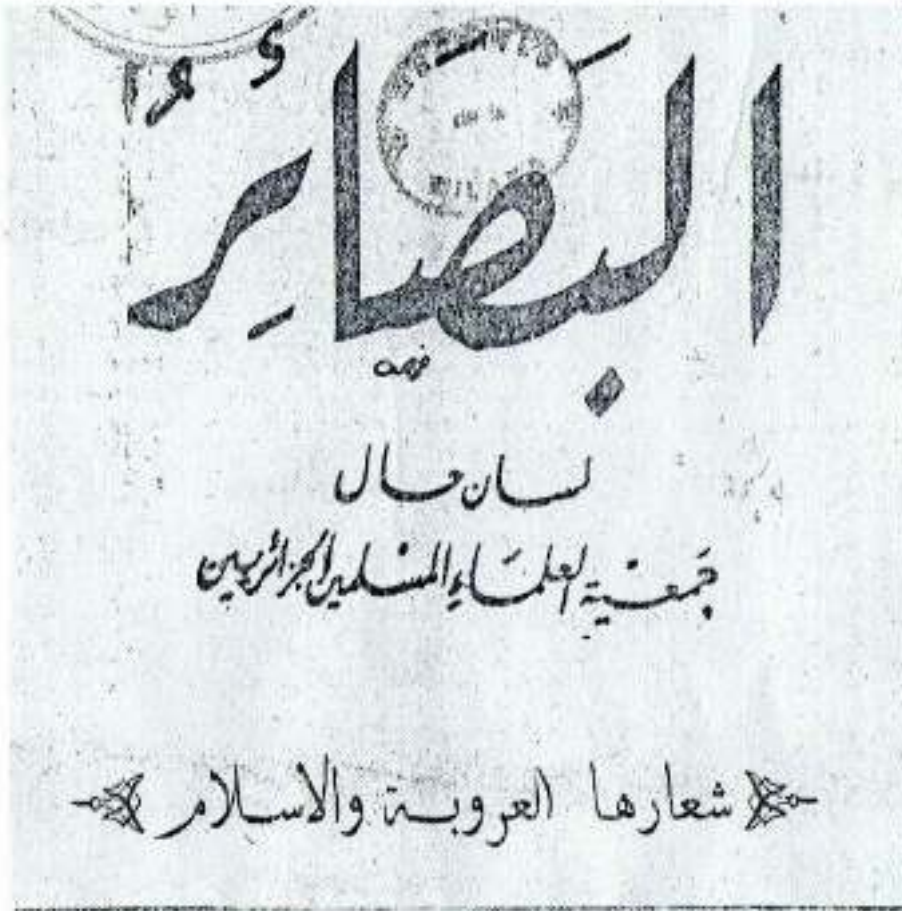 البَصَائِرُ
لسان حال
جَمعيّة العلمَاءِ المسْلمين الجزائريين
شعارها العروبة والاسلام